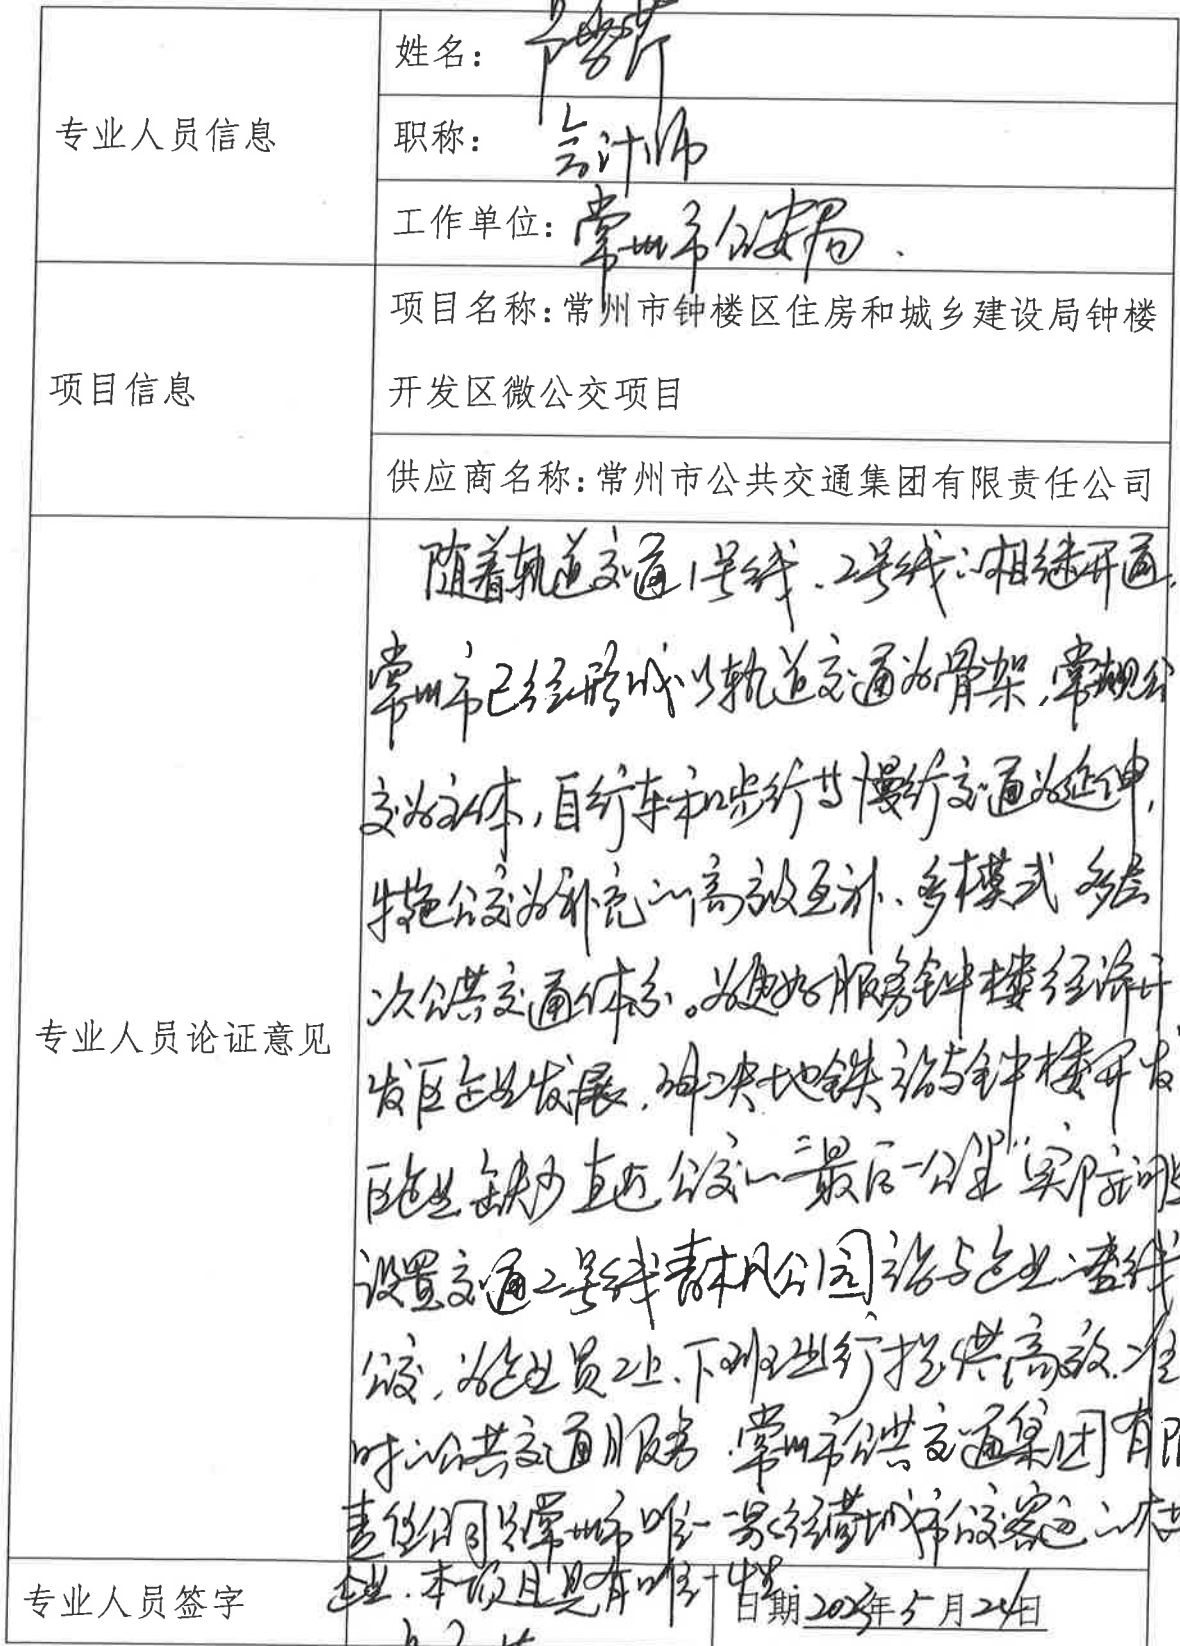 姓名：
专业人员信息
职称：会计师
工作单位：常州市公安局.
项目名称：常州市钟楼区住房和城乡建设局钟楼
项目信息
开发区微公交项目
供应商名称：常州市公共交通集团有限责任公司
随着轨道交通1号线、2号线的相继开通，
常州市已经形成以轨道交通为骨架，常规公
交为主体，自行车和步行等慢行交通为延伸，
特色公交为补充的高效互补、多模式 多层
次公共交通体系。为更好服务钟楼经济开
专业人员论证意见
发区企业发展，解决地铁站与钟楼开发
区企业缺少直达公交的“最后一公里”实际问题
设置交通2号线青枫公园站与企业的直线
公交，为企业员工上、下班出行提供高效、准
时的公共交通服务.常州市公共交通集团有限
责任公司是常州市唯一一家经营城市公交客运的
企业.本项目具有唯一性
专业人员签字
日期2023年5月24日